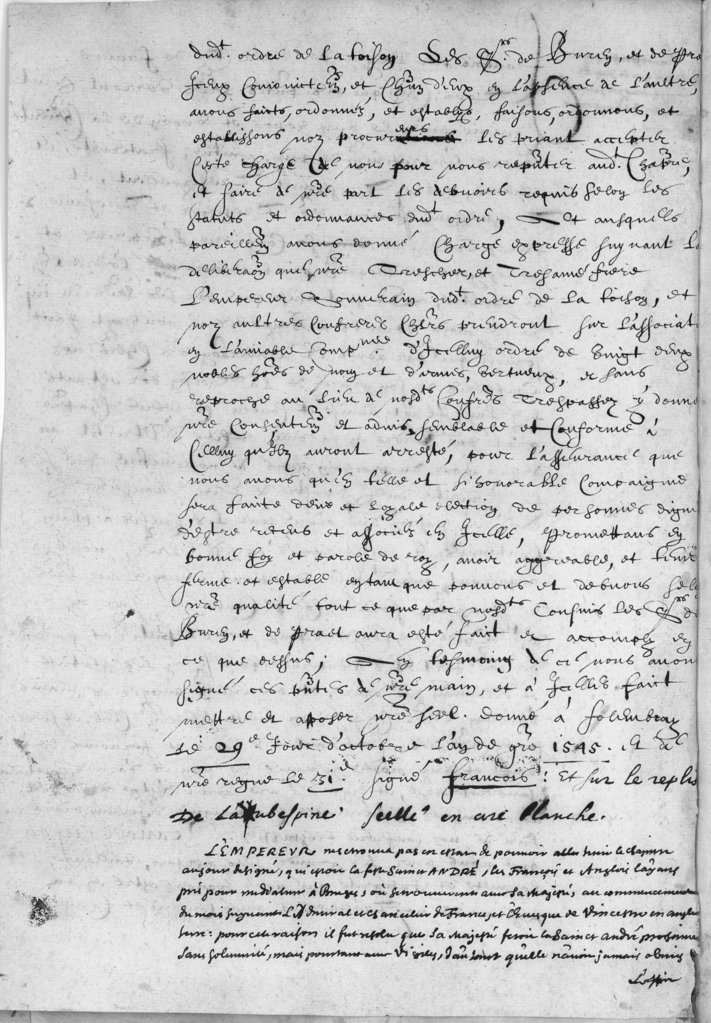 dud.t ordre de la toison Les S.rs de Buren, et de Pra
Jceux Coniointem.t, et Ch'un d'eux en l'absence de l'aultre,
auons faicts, ordonnéz, et establys, faisons, ordonnons, et
establissons noz procureurs les priant accepter
Ceste charge de nous pour nous rep'nter aud.t Chap're,
et faire de n're part les debuoirs requis selon les
statuts et ordonnances dud.t ordre, Et ausquels
pareillem.t auons donné Charge expresse suyuant la
deliberaon que n're Trescher, et Tresamé frere
L'empereur Souuerain dud.t ordre de la toison, et
noz aultres Confreres Ch'ers prendront sur l'associat
en l'amiable Comp.nie d'Jcelluy ordre de vingt deux
nobles ho'es de nom et d'armes, vertueux, et sans
reproche au lieu de nosd.ts Confreres Trespassez y donne
n're Consentem.t et aduis, semblable et Conforme à
Celluy qu'ilz auront arresté, pour l'asseurance que
nous auons qu'en telle et si honorable Compaignie
sera faite deue et loyale election de personnes digne
d'estre receus et associéz en Jcelle, Promettans en
bonne foy et parole de roy, auoir aggreable, et tenir
ferme et estable en tant que pouuons et debuons selo
n're qualité tout ce que par nosd.ts Cousins les S.rs de
Buren, et de Praet aura esté faict et accomply en
ce que dessus; En tesmoing de ce nous auons
signé ces p'ntes de n're main, et à Jcelles faict
mettre et apposer n're seel. Donné à folembray
Le 29.e Jour d'octobre L'an de gr'e 1545. Et de
n're regne le 31.e signé francois: Et sur le replis
De Laubespine: seellé en cire blanche.
L'EMPEREVR ne se trouua pas en estat de pouuoir aller tenir le chapitre
au jour designé, qui estoit la feste Sainct ANDRÉ, les François et Anglois l'ayans
pris pour mediateur à Bruges; où se trouuerent auec Sa Majesté, au commencement
du mois suyuant L'Admiral et Chancelier de France, et l'Euesque de Vincestre en angle
terre: pour cete raison il fut resolu que Sa Majesté feroit la Sainct André prochaine
sans solemnité, mais pourtant aux Vespres, d'autant qu'elle n'auoit jamais obmis